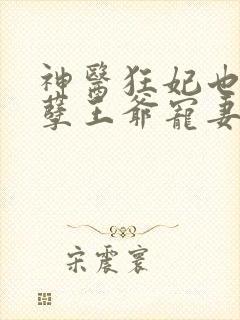 神醫狂妃也
孽王爺寵妻
宋震寰